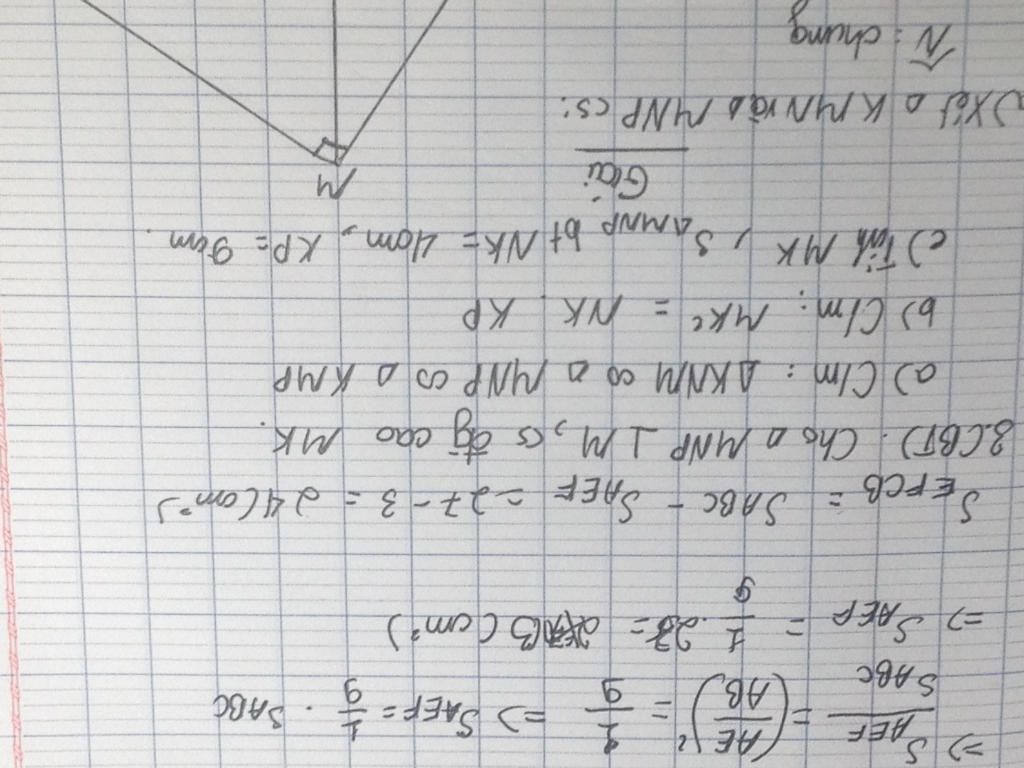 => S AEF / S ABC = (AE/AB)² = 1/9 => S AEF = 1/9 . S ABC
=> S AEF = 1/9 . 27 = 3 (cm²)
S EFCB = S ABC - S AEF = 27 - 3 = 24 (cm²)
3.(BT). Cho Δ MNP ⊥ M, có đg cao MK.
a) C/m: Δ KNM ∽ Δ MNP ∽ Δ KMP
b) C/m: MK² = NK . KP
c) Tính MK, S ΔMNP bt NK = 4cm, KP = 9cm.
Giải
M
a) Xét Δ KMN và Δ MNP có:
N̂ : chung